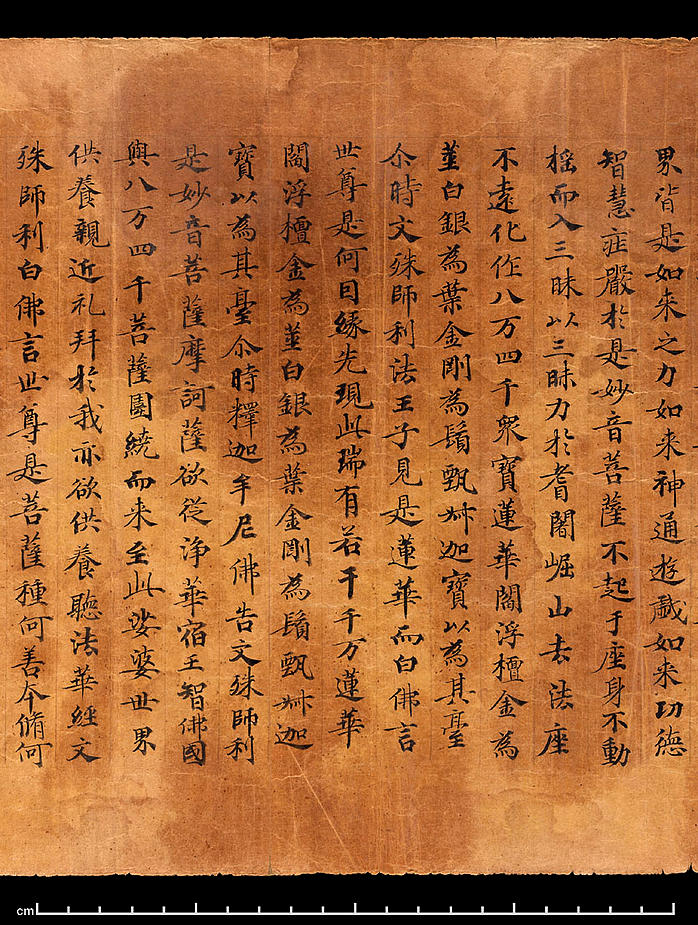 界皆是如来之力如来神通遊戲如来功德
智慧疰嚴於是妙音菩薩不起于座身不動
搖而入三昧以三昧力於耆闍崛山去法座
不遠化作八万四千衆寶蓮華閻浮檀金為
莖白銀為葉金剛為鬚甄叔迦寶以為其臺
尒時文殊師利法王子見是蓮華而白佛言
世尊是何因緣先現此瑞有若千千万蓮華
閻浮檀金為莖白銀為葉金剛為鬚甄叔迦
寶以為其臺尒時釋迦牟尼佛告文殊師利
是妙音菩薩摩訶薩欲從淨華宿王智佛國
與八万四千菩薩圍繞而来至此娑婆世界
供養親近礼拜於我亦欲供養聽法華經文
殊師利白佛言世尊是菩薩種何善夲脩何
cm